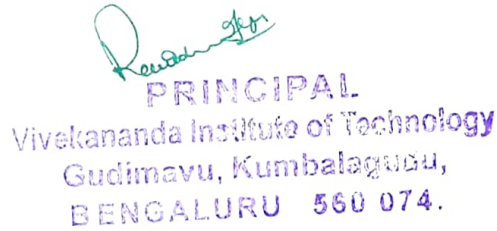 PRINCIPAL
Vivekananda Institute of Technology
Gudimavu, Kumbalagudu,
BENGALURU 560 074.